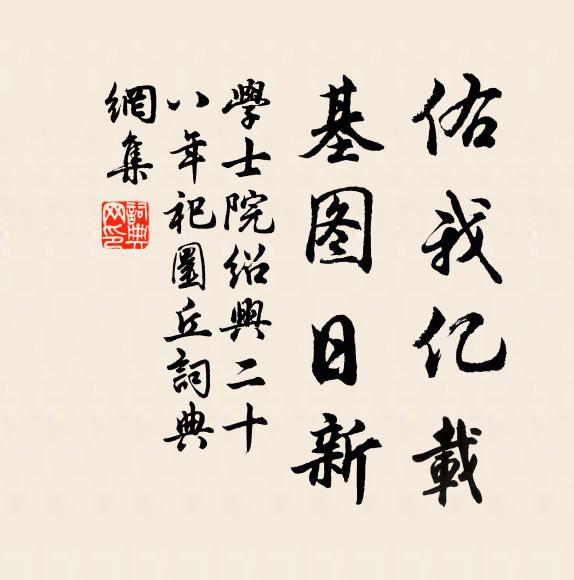 佑我亿載
基图日新
學士院紹興二十
八年祀圜丘詞典
網集
詞典網印